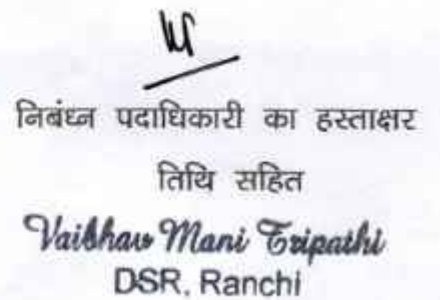 निबंध्न पदाधिकारी का हस्ताक्षर
तिथि सहित
Vaibhav Mani Tripathi
DSR, Ranchi